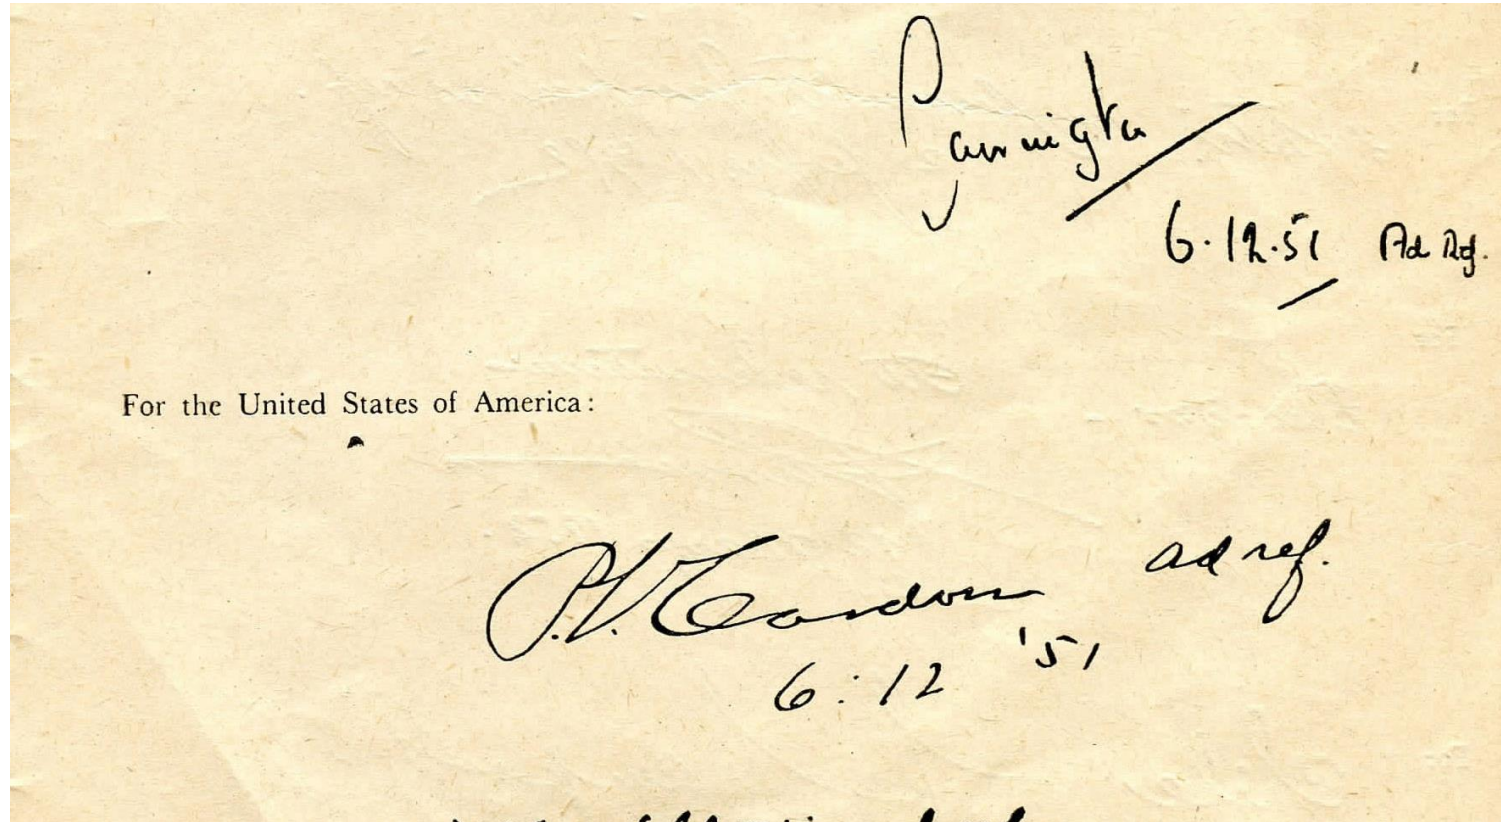 6.12.51 Ad Ref.
For the United States of America:
P.V. Cardon ad ref.
6:12 '51